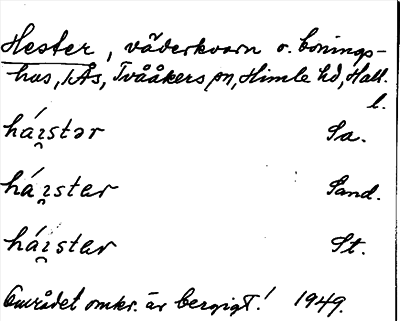 Hester, väderkvarn o. bonings-
hus, kÅs, Tvååkers sn, Himle hd, Hall.
l.
háı̯stər Sa.
háı̯star Sand.
háı̯star St.
Området omkr. är bergigt! 1949.